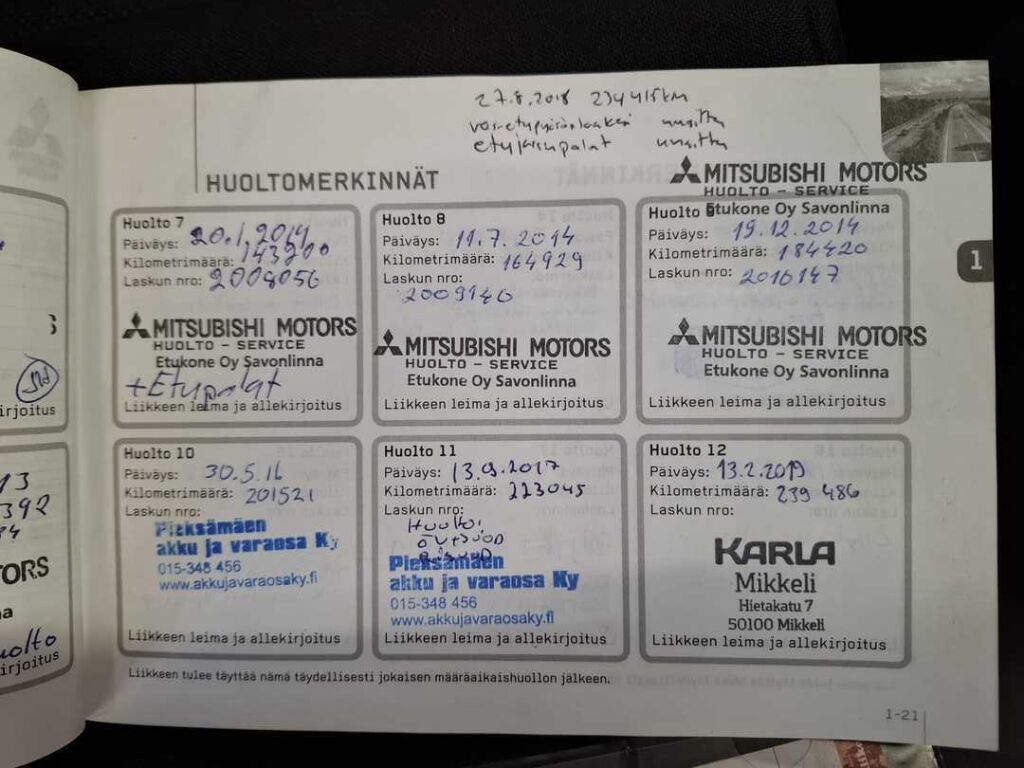 27.8.2018 234415km
etujarrupalat uusittu
HUOLTOMERKINNÄT
MITSUBISHI MOTORS
HUOLTO - SERVICE
Etukone Oy Savonlinna
Huolto 7
Päiväys: 20.1.2014
Kilometrimäärä: 143200
Laskun nro: 2008056
MITSUBISHI MOTORS
HUOLTO - SERVICE
Etukone Oy Savonlinna
+Etupalat
Liikkeen leima ja allekirjoitus
Huolto 8
Päiväys: 11.7.2014
Kilometrimäärä: 164929
Laskun nro:
2009146
MITSUBISHI MOTORS
HUOLTO - SERVICE
Etukone Oy Savonlinna
Liikkeen leima ja allekirjoitus
Huolto
Päiväys: 19.12.2014
Kilometrimäärä: 184420
Laskun nro: 2010147
MITSUBISHI MOTORS
HUOLTO - SERVICE
Etukone Oy Savonlinna
Liikkeen leima ja allekirjoitus
Huolto 10
Päiväys: 30.5.16
Kilometrimäärä: 201521
Laskun nro:
Pieksämäen
akku ja varaosa Ky
015-348 456
www.akkujavaraosaky.fi
Liikkeen leima ja allekirjoitus
Huolto 11
Päiväys: 13.9.2017
Kilometrimäärä: 223045
Laskun nro:
Pieksämäen
akku ja varaosa Ky
015-348 456
www.akkujavaraosaky.fi
Liikkeen leima ja allekirjoitus
Huolto 12
Päiväys: 13.2.2019
Kilometrimäärä: 239 486
Laskun nro:
KARLA
Mikkeli
Hietakatu 7
50100 Mikkeli
Liikkeen leima ja allekirjoitus
Liikkeen tulee täyttää nämä täydellisesti jokaisen määräaikaishuollon jälkeen.
1-21
1